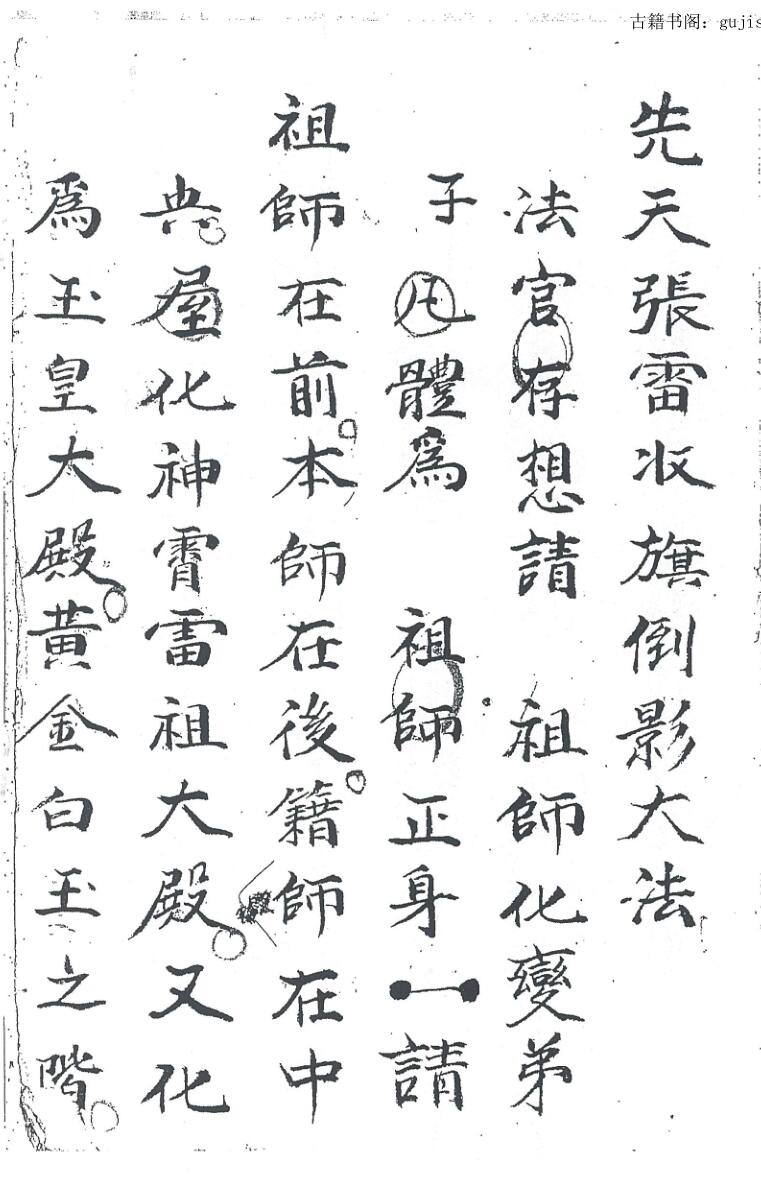 古籍书阁：gujis
先天張雷收旗倒影大法
法官存想請 祖師化變弟
子凡體爲 祖師正身一請
祖師在前本師在後籍師在中
典屋化神霄雷祖大殿又化
爲玉皇大殿黃金白玉之階